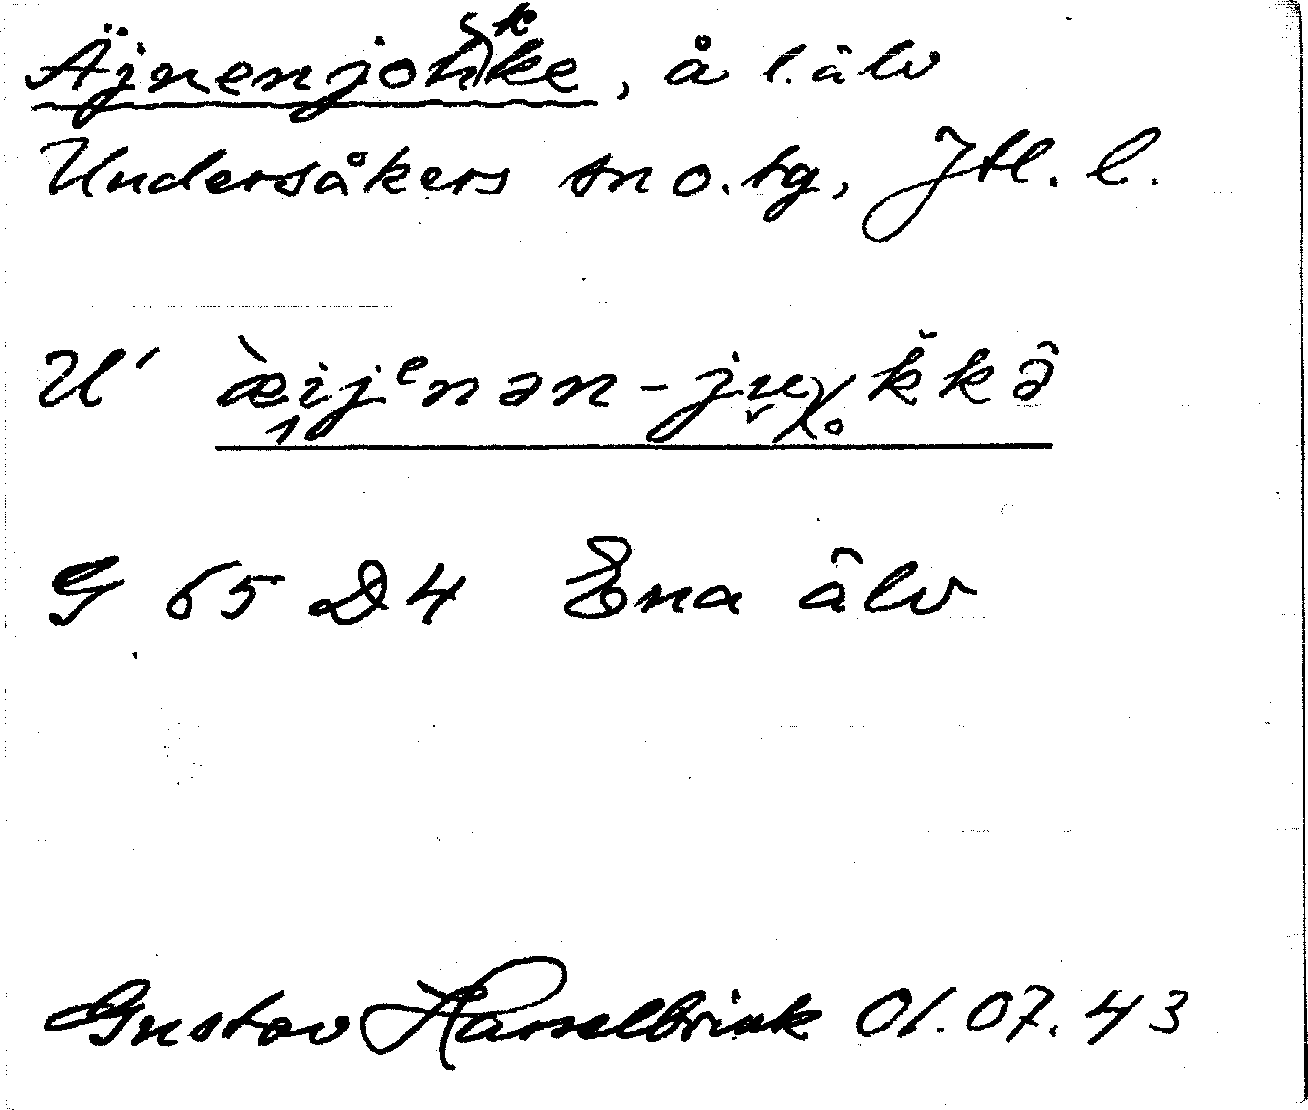 Äjnenjohkke, å l. älv
Undersåkers sn o. tg, Jtl. l.
U' æ̀ijᵉnən-juχkkə̂
G 65 D4 Ena älv
Gustav Hasselbrink 01.07.43